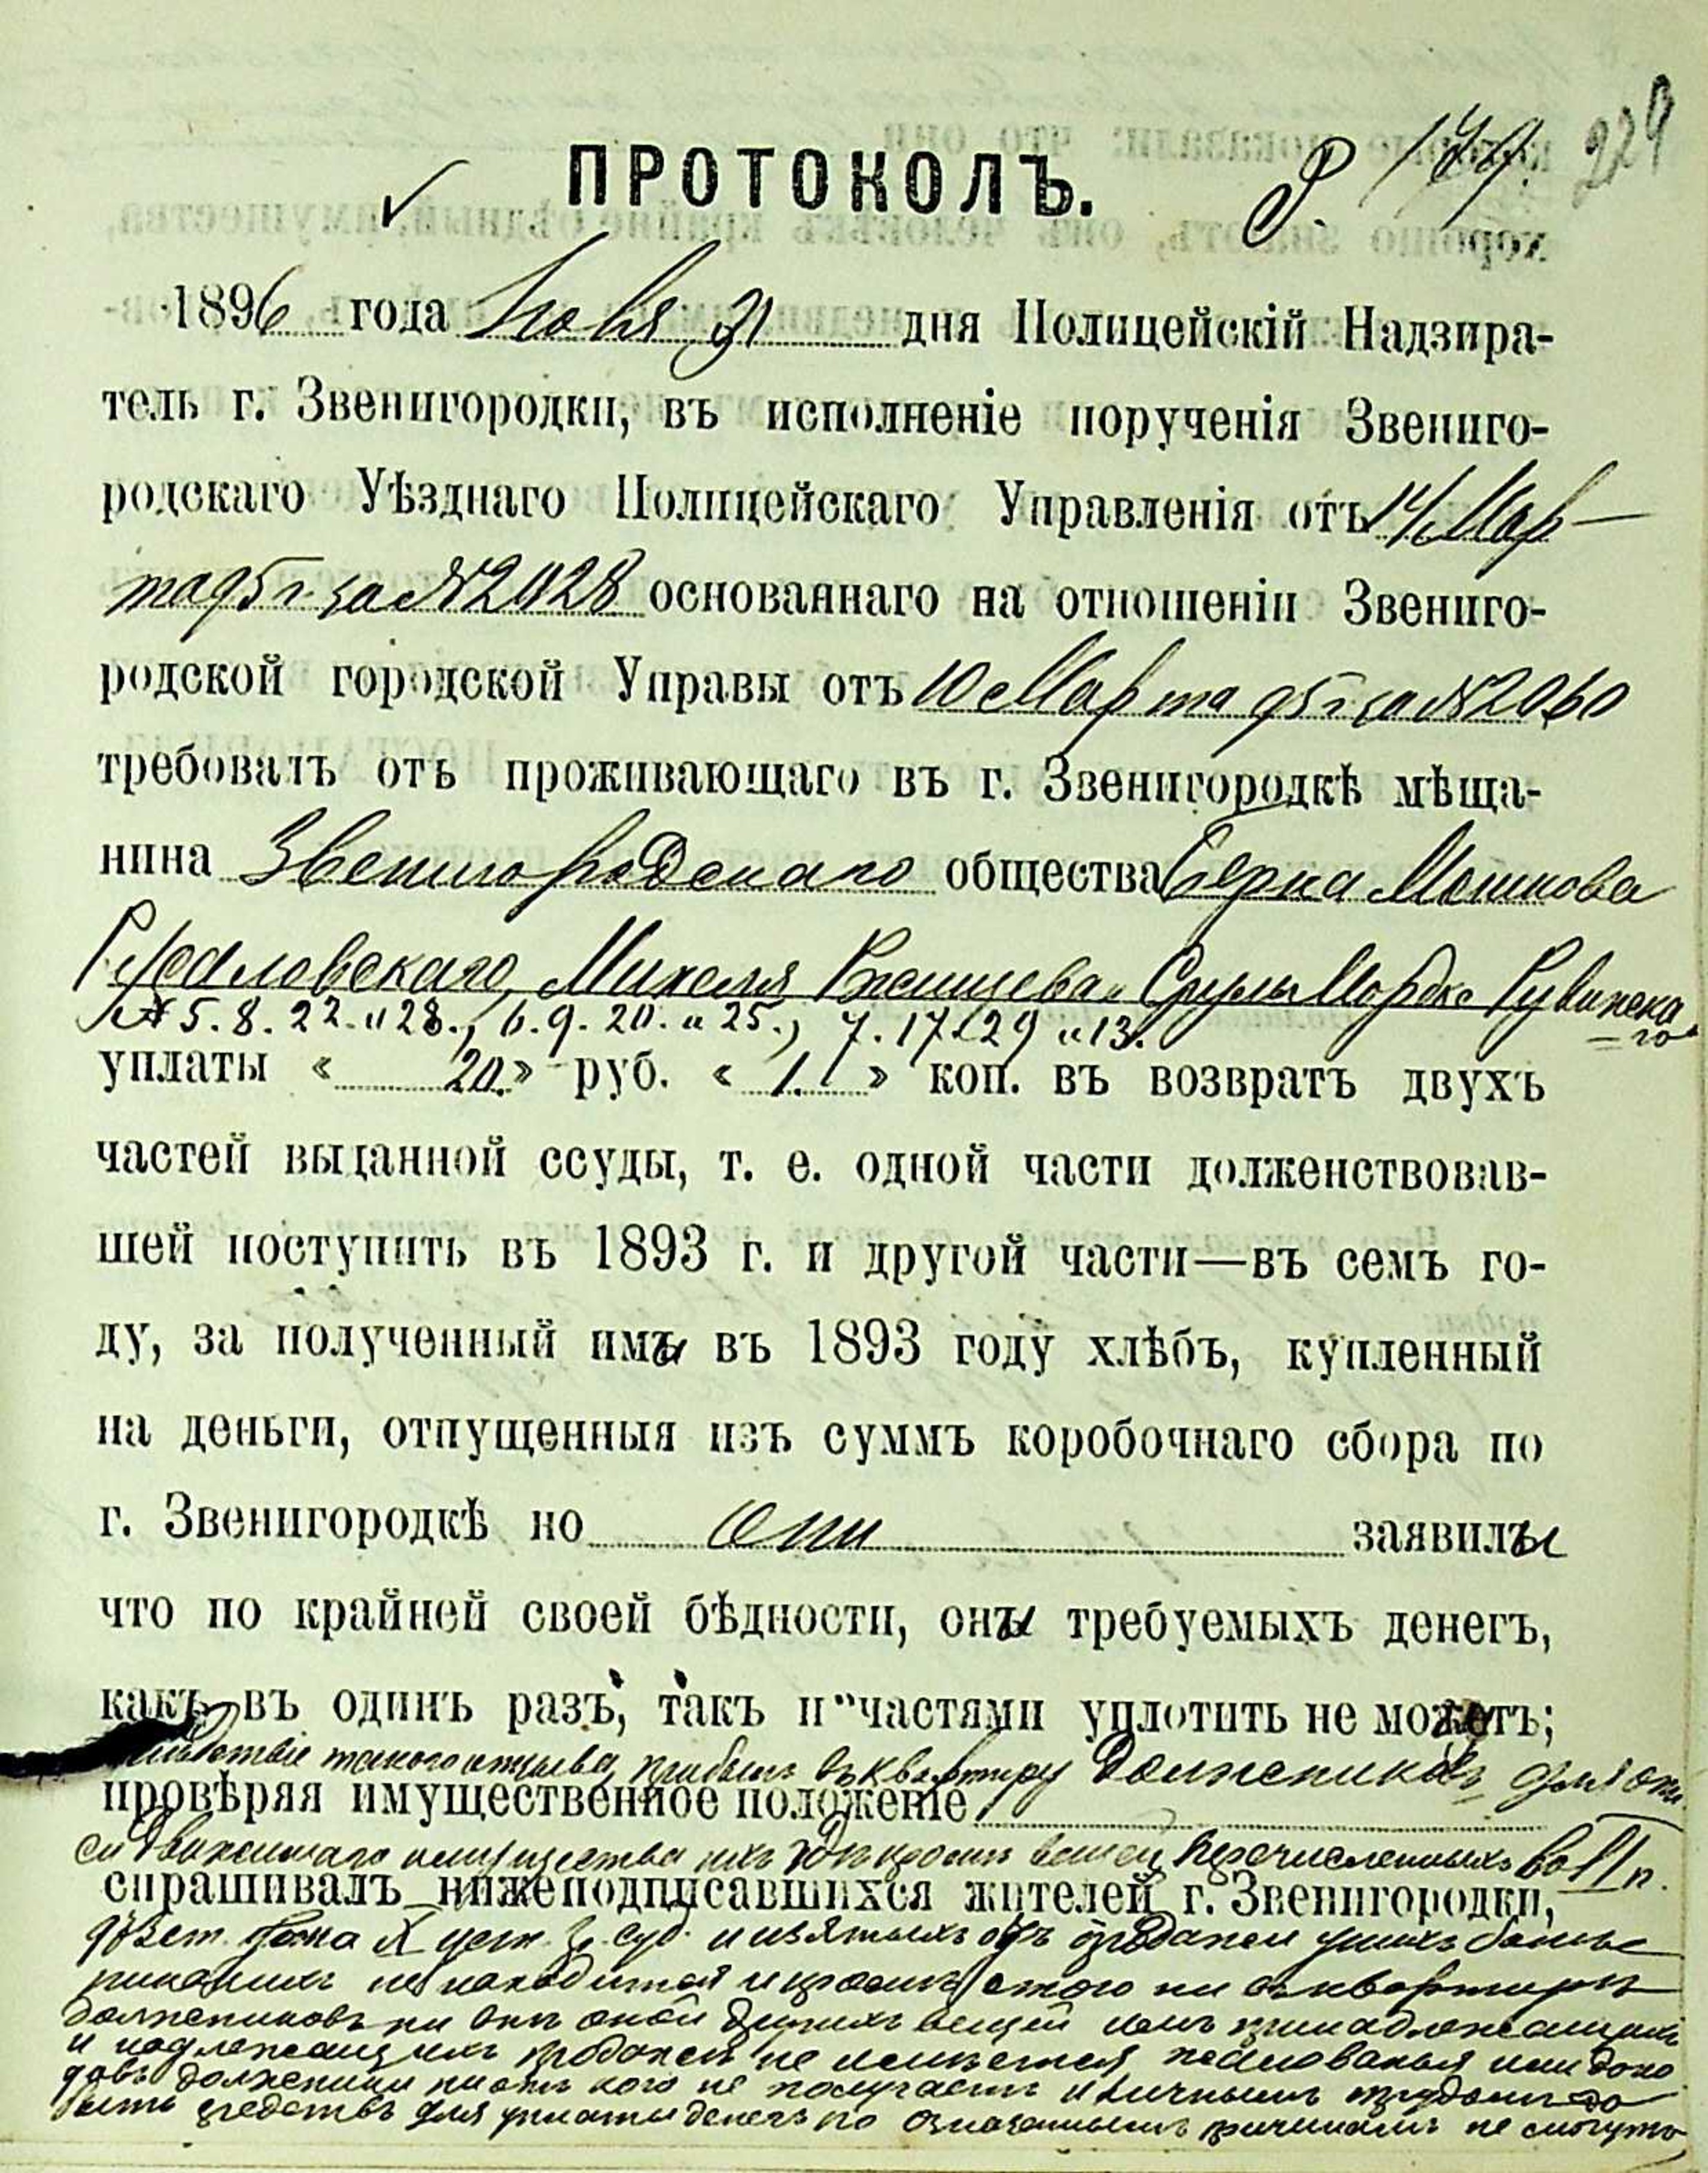 ПРОТОКОЛЪ.
229
1896 года дня Полицейскій Надзира-
тель г. Звенигородки, въ исполненіе порученія Звениго-
родскаго Уѣзднаго Полицейскаго Управленія отъ 14 Мар-
та 95 г. за № 2028 основаннаго на отношеніи Звениго-
родской городской Управы отъ 10 Марта 95 г за № 2060
требовалъ отъ проживающаго въ г. Звенигородкѣ мѣща-
нина Звенигородскаго общества Берка Мошкова
Михеля Срулы Мордка
№ 5. 8. 22. и 28., 6. 9. 20. и 25., 7. 17 29 и 13.
уплаты « 20. » руб. « 1. » коп. въ возвратъ двухъ
частей выданной ссуды, т. е. одной части долженствовав-
шей поступить въ 1893 г. и другой части—въ семъ го-
ду, за полученный ими въ 1893 году хлѣбъ, купленный
на деньги, отпущенныя изъ суммъ коробочнаго сбора по
г. Звенигородкѣ но они заявилы
что по крайней своей бѣдности, оны требуемыхъ денегъ,
какъ въ одинъ разъ, такъ и частями уплотить не могутъ;
такого отзыва, прибылъ въ квартиру должениковъ для опи
провѣряя имущественное положеніе
си движимаго имущества ихъ но кромѣ вещей перечисленныхъ во II п.
спрашивалъ нижеподписавшихся жителей г. Звенигородки,
973 ст. X уст. Гр. суд. и изятыхъ отъ продажи у нихъ больше
никакихъ не находится и кромѣ этого ни въ квартирѣ
должениковъ ни внѣ оной другихъ вещей имъ принадлежащихъ
и подлежащихъ продажи не имѣется, жалованья или дохо
довъ должники ни отъ кого не получаютъ и личнымъ трудомъ до
быть средствъ для уплаты денегъ по означеннымъ причинамъ не смогутъ